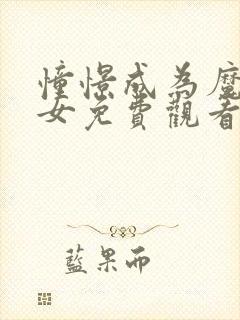 憧憬成為魔
女免費觀看
藍果而